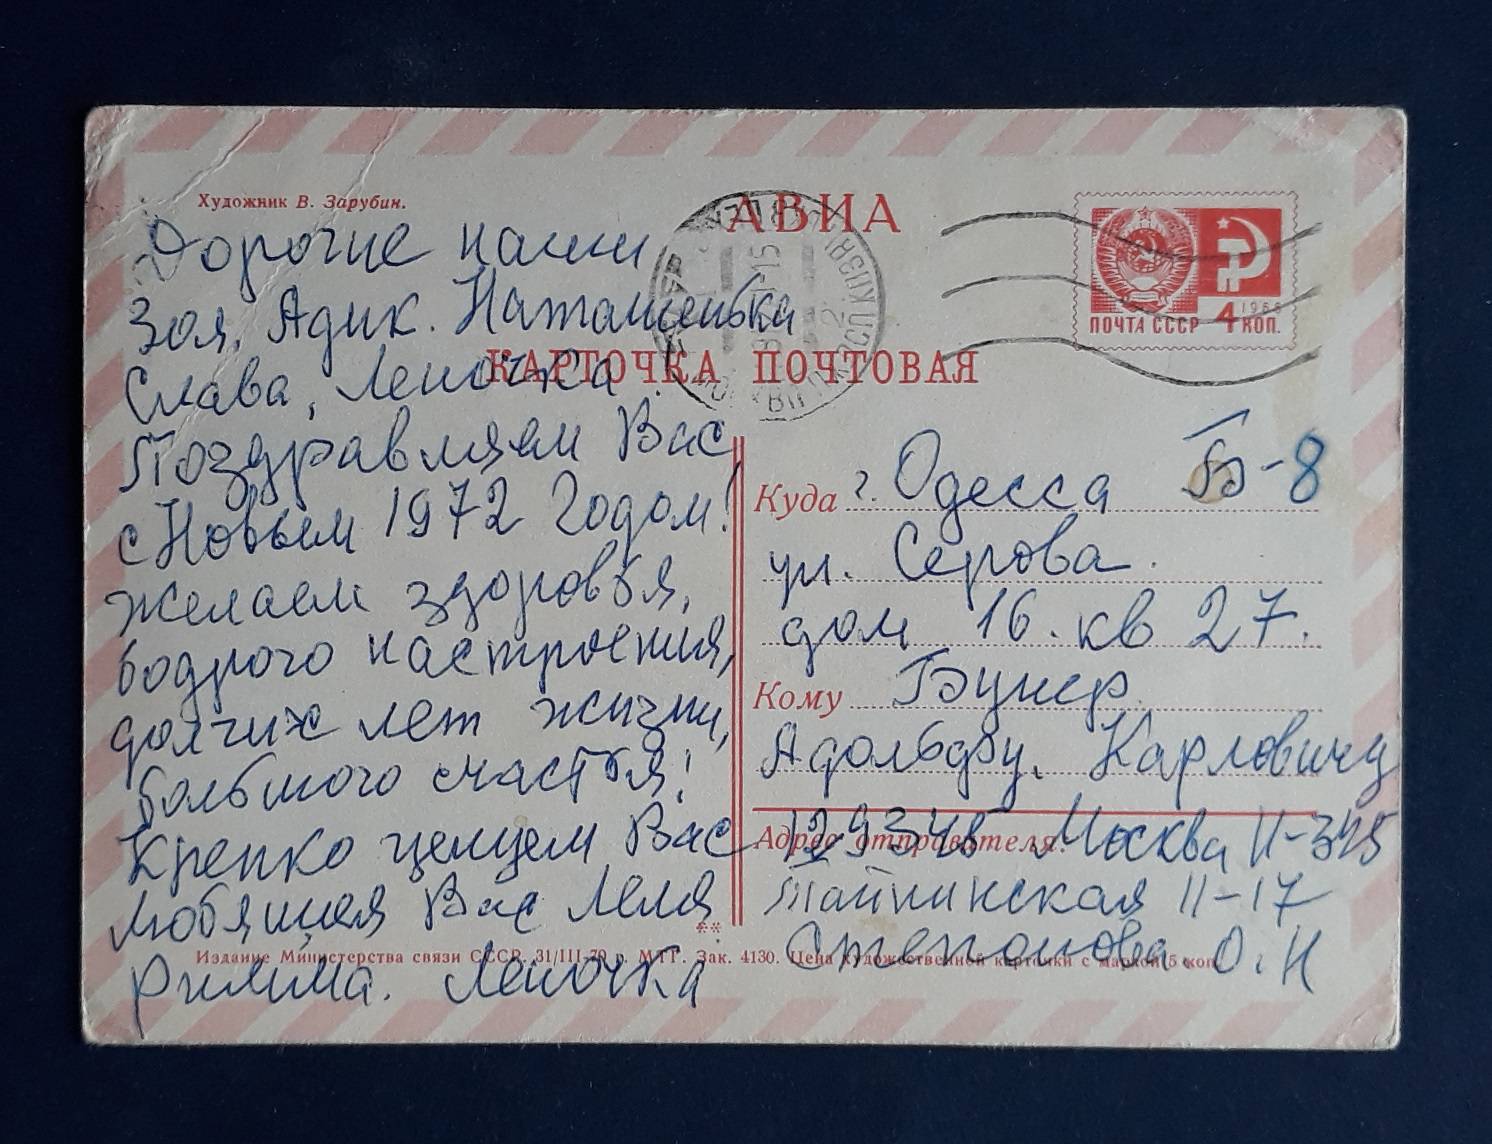 Художник В. Зарубин.
АВИА
ПОЧТА СССР 4 КОП.
1966
КАРТОЧКА ПОЧТОВАЯ
Дорогие наши
Зоя, Адик. Наташенька
Слава, Леночка.
Поздравляем Вас
с Новым 1972 Годом!
Желаем здоровья,
бодрого настроения,
долгих лет жизни,
большого счастья!
Крепко целуем Вас
Любящая Вас Леля
Римма. Леночка
Куда г. Одесса Б-8
ул. Серова.
дом 16. кв 27.
Кому Бунер
Адольфу. Карловичу
Адрес отправителя:
Москва И-345
Тайнинская 11-17
Степанова О. Н
Издание Министерства связи СССР. 31/III-70 г. МТГ. Зак. 4130. Цена художественной карточки с маркой 5 коп.